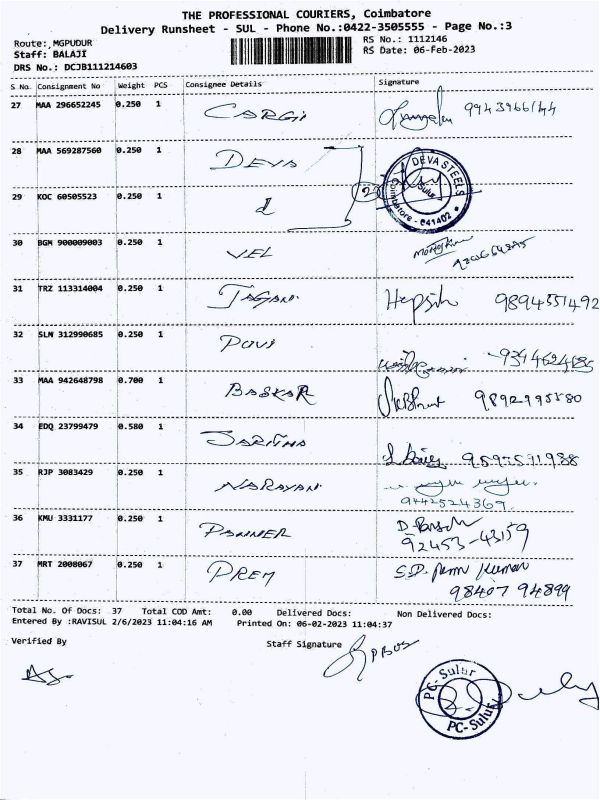 THE PROFESSIONAL COURIERS, Coimbatore
Delivery Runsheet - SUL - Phone No.:0422-3505555 - Page No.:3
Route: MGPUDUR
RS No.: 1112146
Staff: BALAJI
RS Date: 06-Feb-2023
DRS No.: DCJB111214603
S No. Consignment No Weight PCS Consignee Details Signature
27 MAA 296652245 0.250 1 CARGI
28 MAA 569287560 0.250 1 DEVA
DEVA STEELS
Sulur
Coimbatore - 641402
29 KOC 60505523 0.250 1
30 BGM 900009003 0.250 1 VEL
31 TRZ 113314004 0.250 1 JAGAN 9894551492
32 SLM 312990685 0.250 1
33 MAA 942648798 0.700 1 BASKAR
34 EDQ 23799479 0.580 1
35 RJP 3083429 0.250 1 NARAYAN
9442524369
36 KMU 3331177 0.250 1 PANNER
92453-43159
37 MRT 2008067 0.250 1 PREM S.D. Prem Kumar
98407 94899
Total No. Of Docs: 37 Total COD Amt: 0.00 Delivered Docs: Non Delivered Docs:
Entered By :RAVISUL 2/6/2023 11:04:16 AM Printed On: 06-02-2023 11:04:37
Verified By Staff Signature
PC-Sulur
PC-Sulur